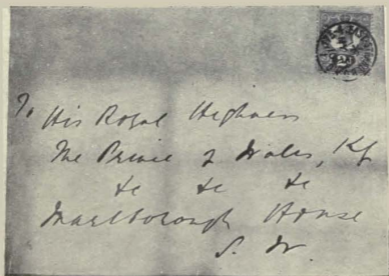 To
His Royal Highness
The Prince of Wales, KG
&c &c &c
Marlborough House
S. W.